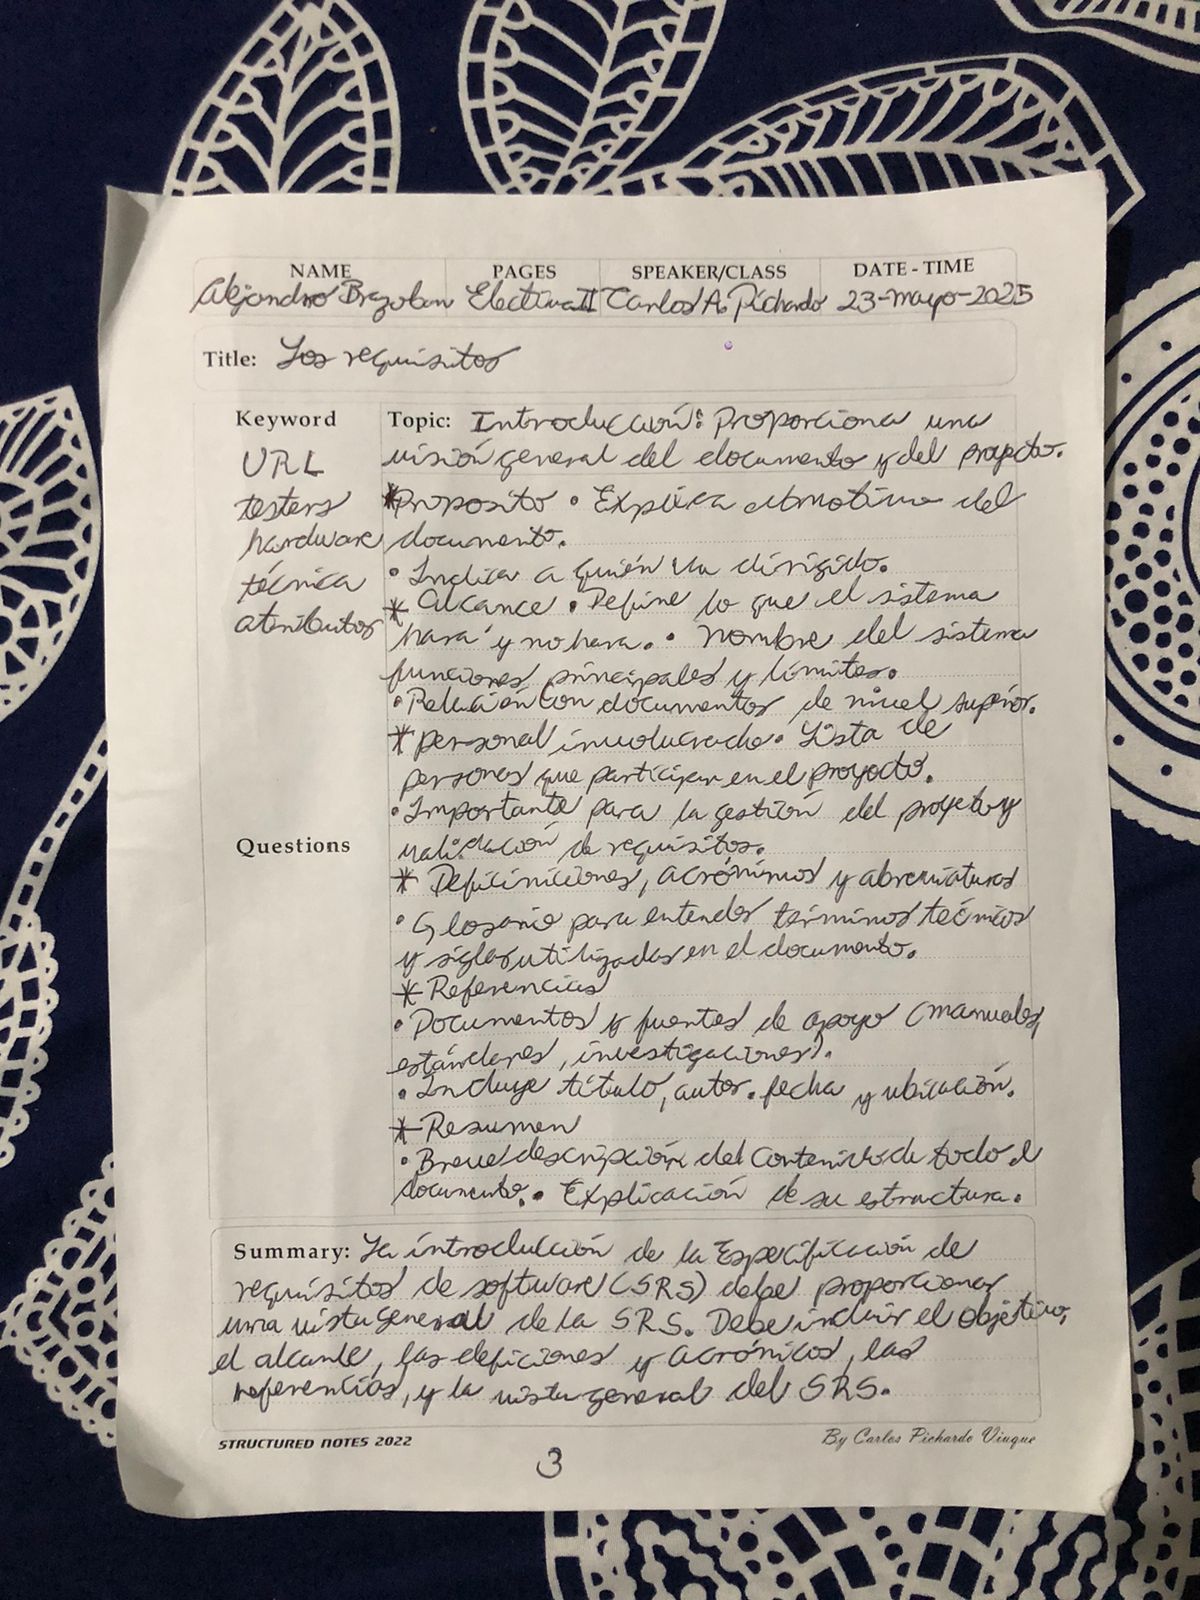 NAME PAGES SPEAKER/CLASS DATE - TIME
Alejandro Brazoban Electiva II Carlos A. Pichardo 23-mayo-2025
Title: Los requisitos
Keyword
URL
testers
hardware
técnica
atributos
Questions
Topic: Introducción: Proporciona una
visión general del documento y del proyecto.
*Proposito • Explica el motivo del
documento.
• Indica a quién va dirigido.
* alcance • Define lo que el sistema
hara y no hara. • nombre del sistema
funciones principales y límites.
• Relación con documentos de nivel superior.
* personal involucrado. Lista de
personas que participan en el proyecto.
• Importante para la gestión del proyeto y
validación de requisitos.
* Deficiniciones, acrónimos y abreviaturas
• Glosario para entender términos técnicos
y siglas utilizadas en el documento.
* Referencias
• Documentos y fuentes de apoyo (manuales,
estándares, investigaciones).
• Incluye título, autor. fecha y ubicación.
* Resumen
• Breve descripción del contenido de todo el
documento. • Explicación de su estructura.
Summary: La introducción de la Especificación de
requisitos de software (SRS) debe proporcionar
una vista general de la SRS. Debe incluir el objetivo,
el alcante, las deficiones y acrónicos, las
referencias, y la vista general del SRS.
STRUCTURED NOTES 2022 By Carlos Pichardo Viuque
3